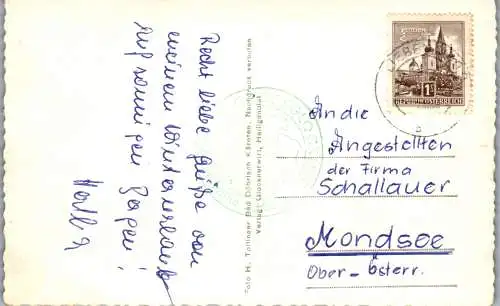 Recht liebe Grüße von
meinem Winterurlaub
auf sonnigen
Foto H. Tollinger Bad Döbriach Kärnten, Nachdruck verboten
Verlag: Glocknerwirt, Heiligenblut
Mariazell
1S
REPUBLIK ÖSTERREICH
An die
Angestellten
der Firma
Schallauer
Mondsee
Ober-österr.